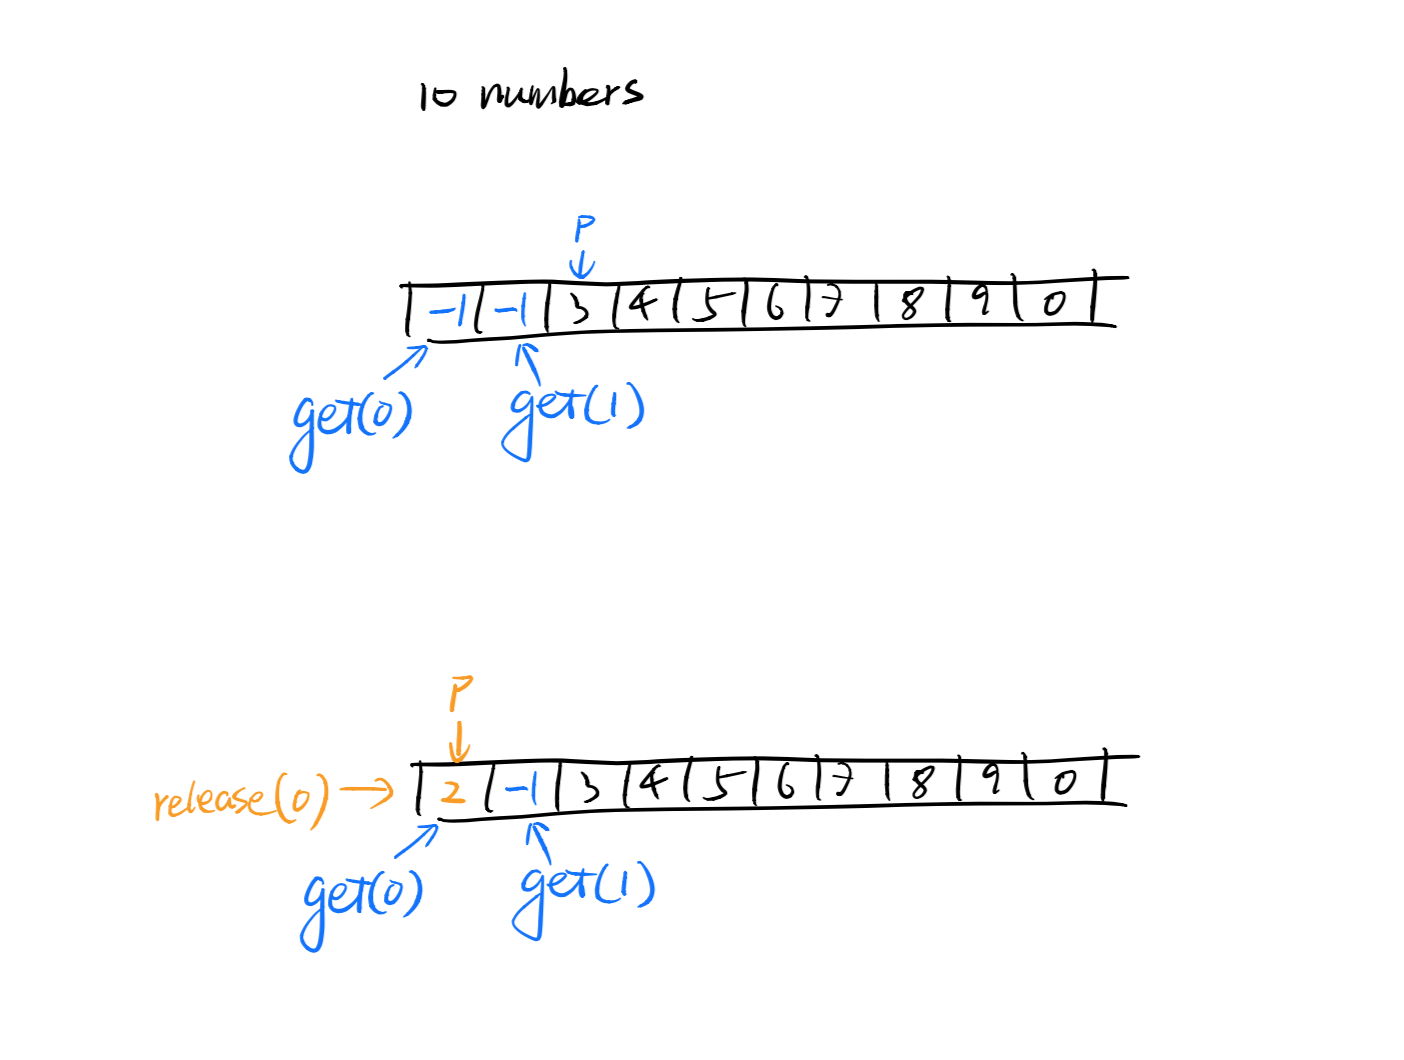 10 numbers
P
-1 -1 3 4 5 6 7 8 9 0
get(0) get(1)
P
release(0) 2 -1 3 4 5 6 7 8 9 0
get(0) get(1)